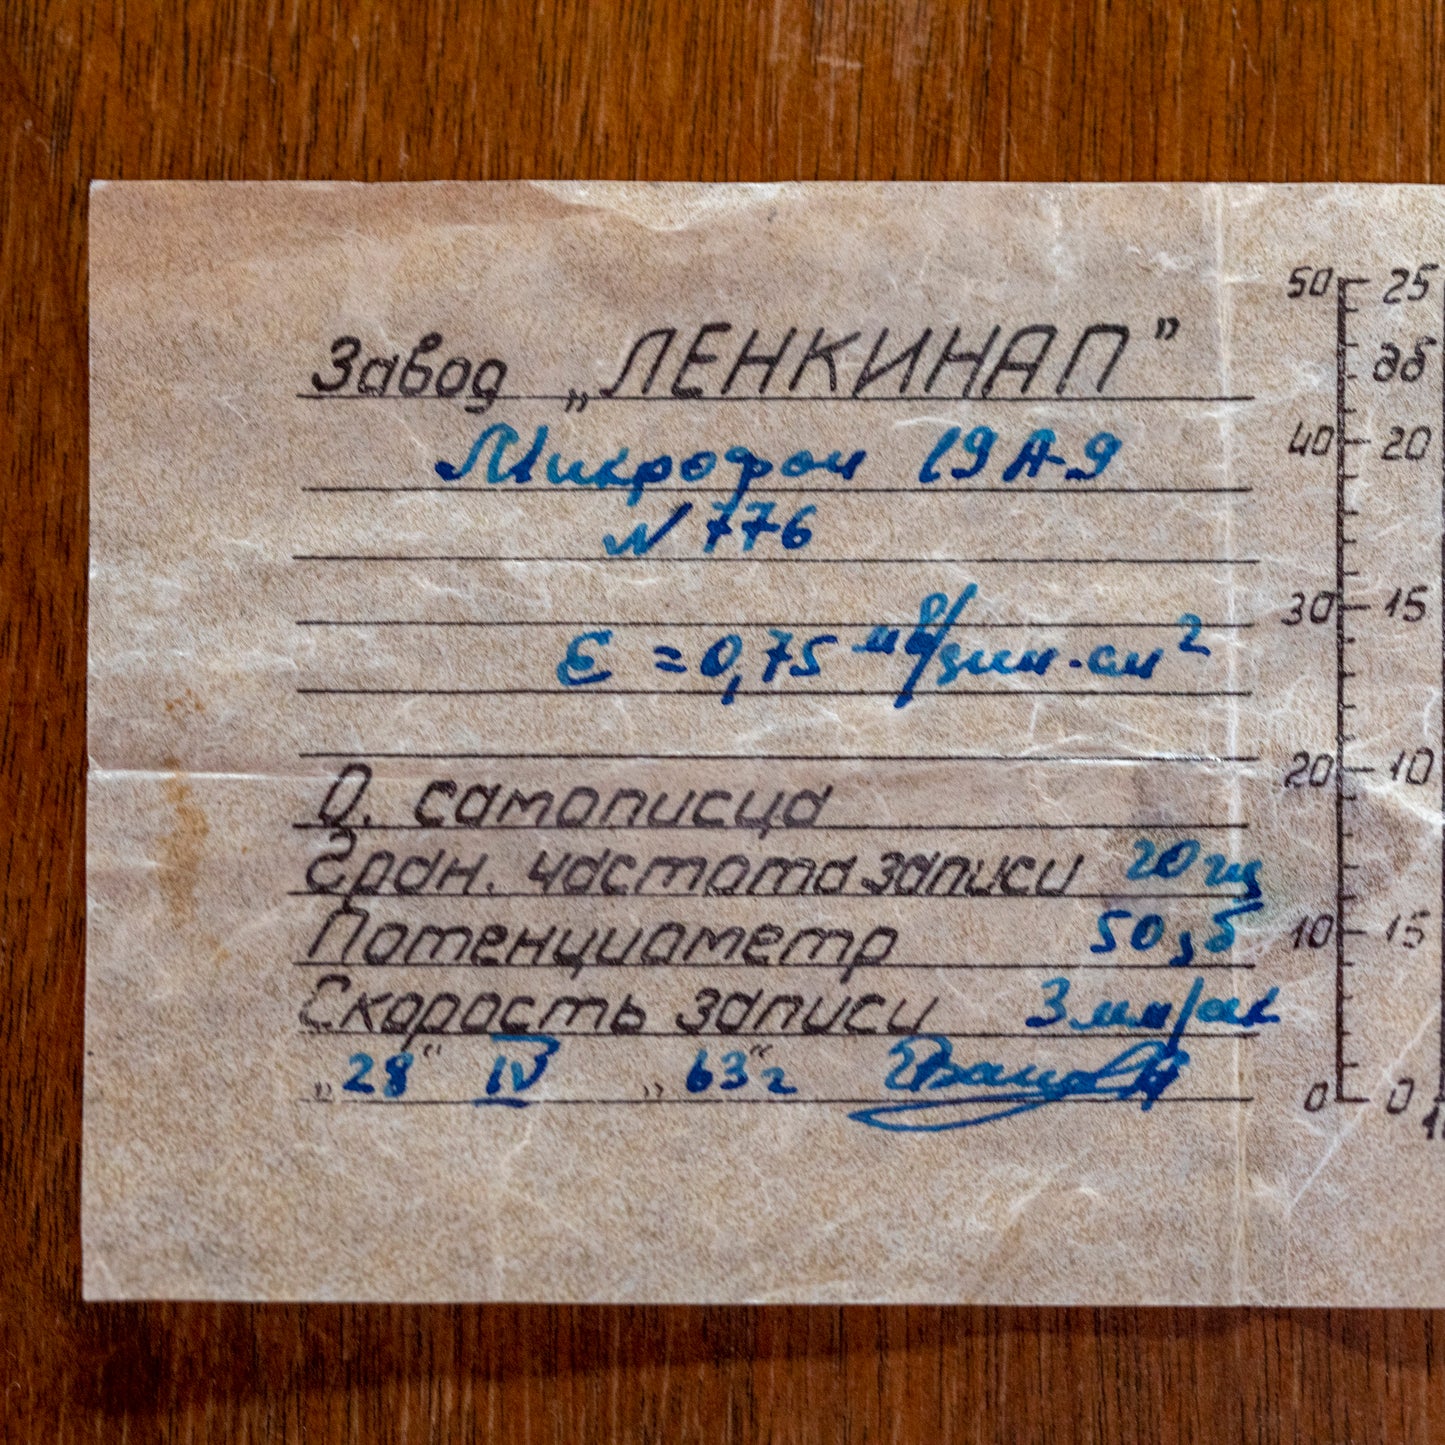 Завод „ЛЕНКИНАП”
Микрофон 19А-9
N 776
ε = 0,75 мв/дин·см²
О. самописца
Гран. частота записи 20 гц
Потенциометр 50 дб
Скорость записи 3 мм/сек
„28“ IV „63“ г
50 25
дб
40 20
30 15
20 10
10 15
0 0